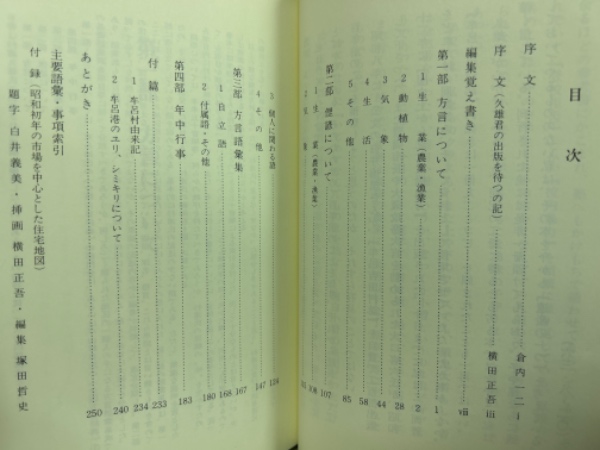 目次
序文 倉内一二 i
序文(久雄君の出版を待つの記) 横田正吾 iii
編集覚え書き vii
第一部 方言について 1
1 生業(農業・漁業) 2
2 動植物 28
3 気象 44
4 生活 58
5 その他 85
第二部 俚諺について 107
1 生業(農業・漁業) 108
2
3 個人に関わる諺
4 その他 147
第三部 方言語彙集 167
1 自立語 168
2 付属語・その他 180
第四部 年中行事 183
付篇 233
1 牟呂村由来記 234
2 牟呂港のユリ、シミキリについて 240
あとがき 250
主要語彙・事項索引
付録(昭和初年の市場を中心とした住宅地図)
題字 白井義美・挿画 横田正吾・編集 塚田哲史